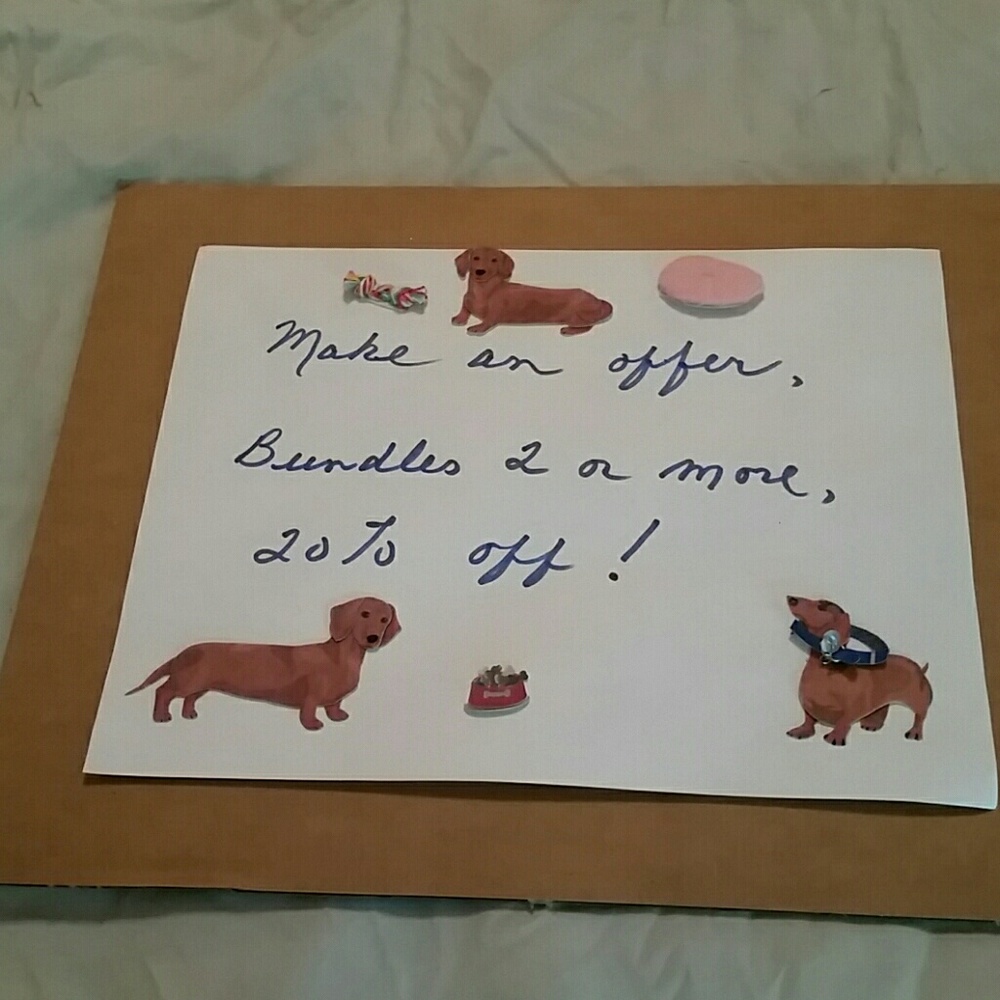 Make an offer,
Bundles 2 or more,
20% off!